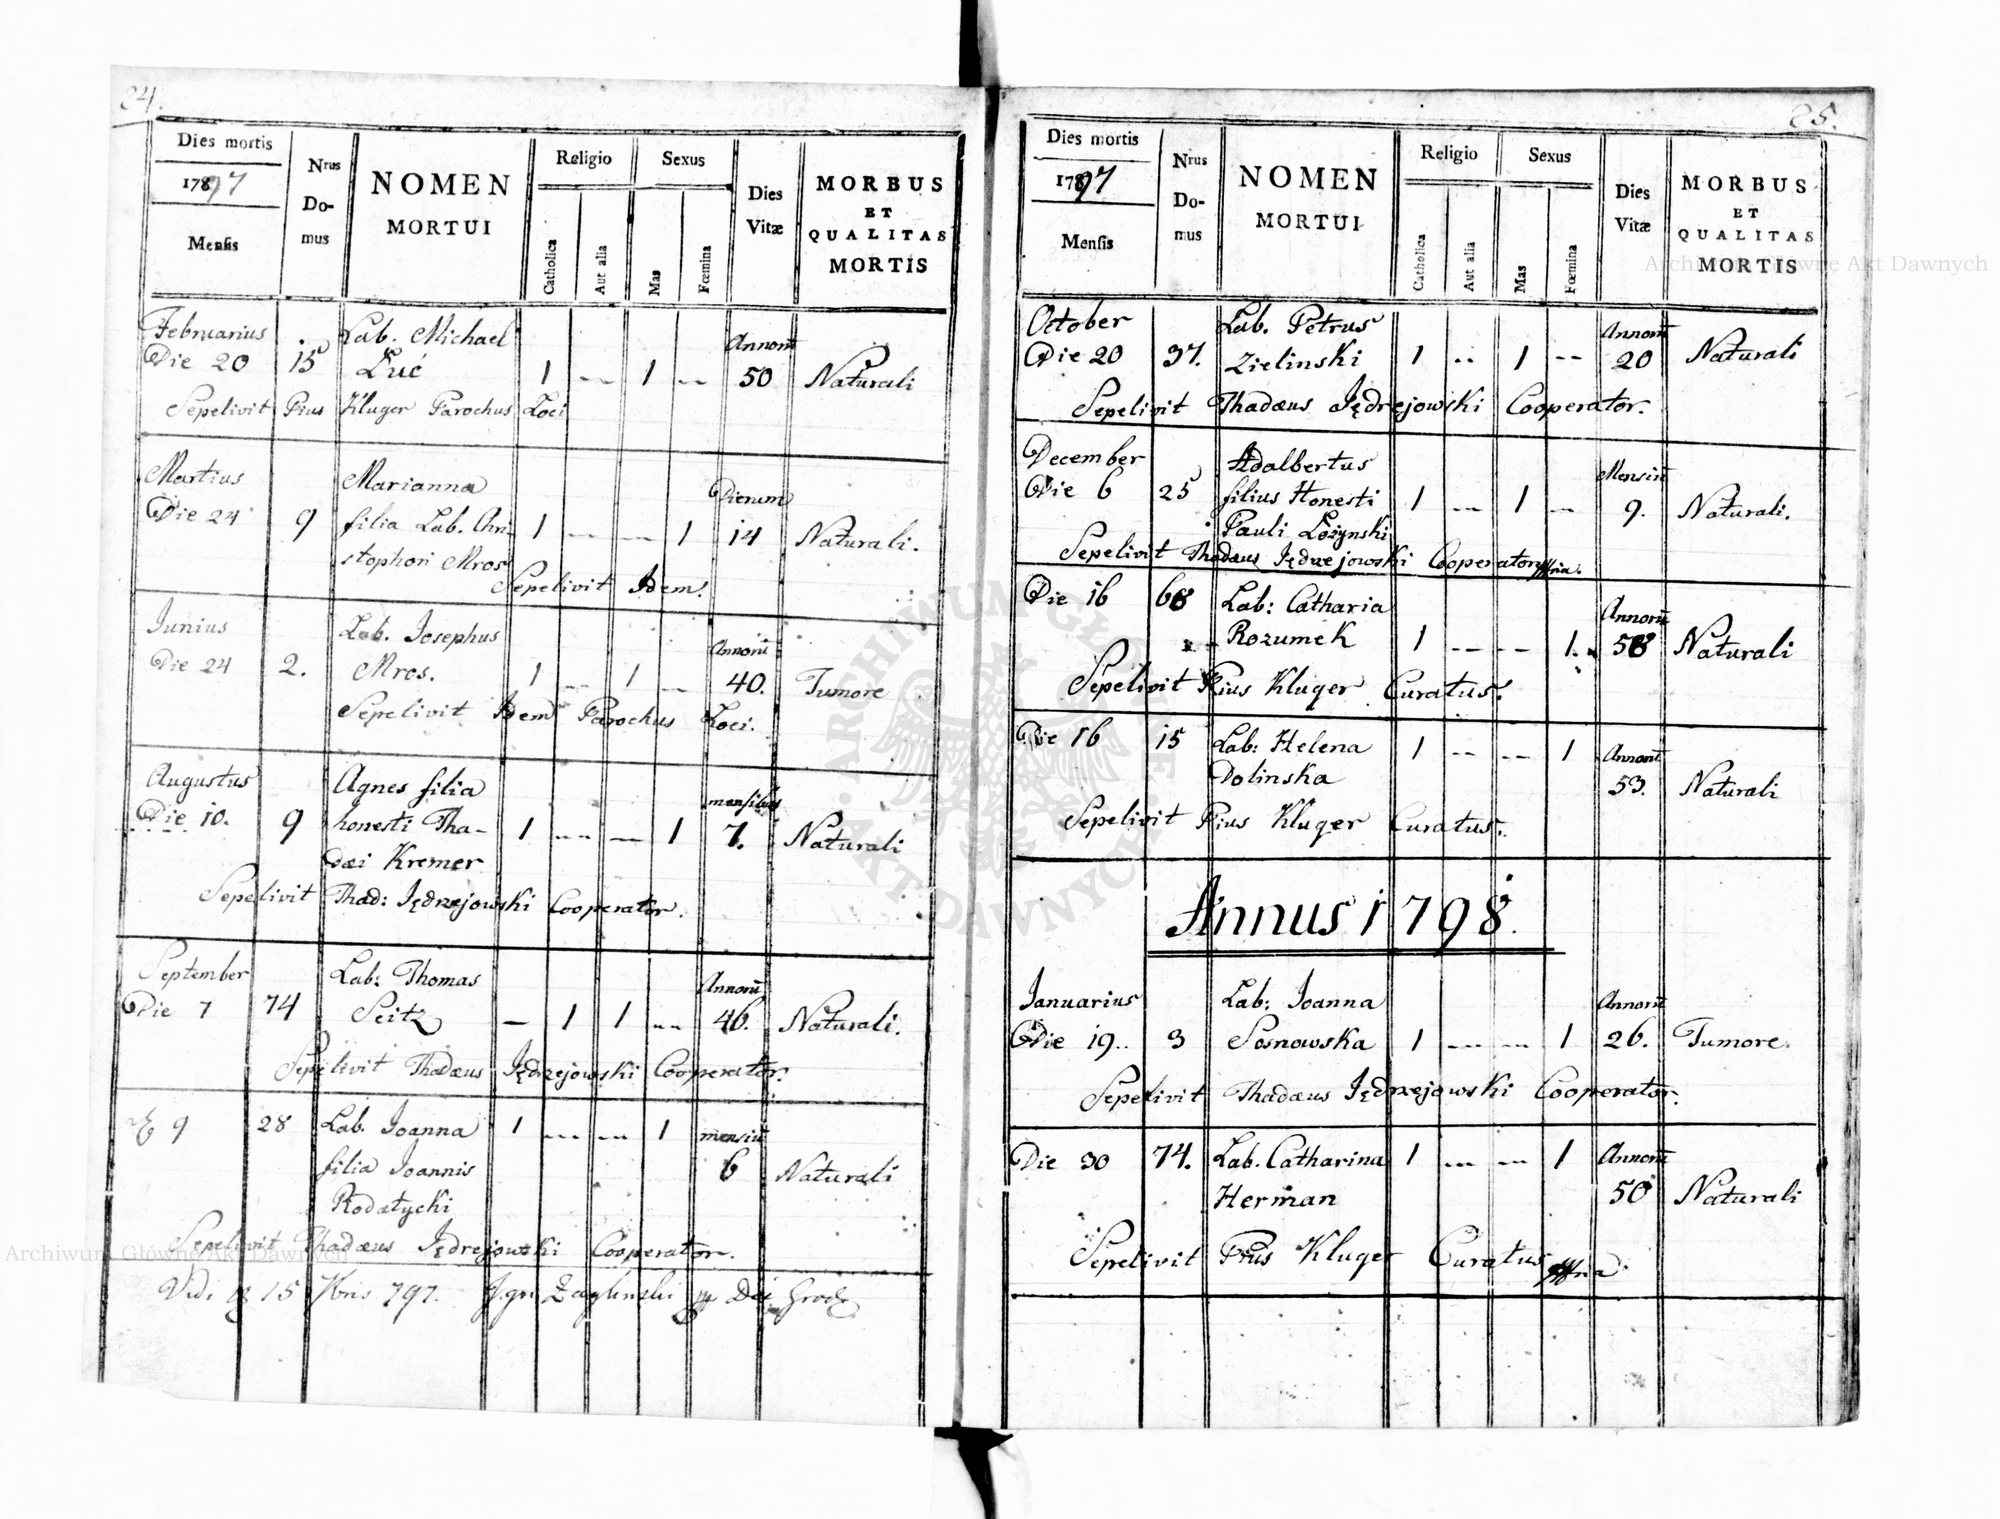 24.
Dies mortis
1797
Mensis
Nrus
Do-
mus
NOMEN
MORTUI
Religio
Catholica
Aut alia
Sexus
Mas
Fœmina
Dies
Vitæ
MORBUS
ET
QUALITAS
MORTIS
Februarius Lab. Michael Annorū
Die 20 15 Łuć 1 -- 1 -- 50 Naturali
Sepelivit Pius Kluger Parochus Loci
Martius Marianna Dierum
Die 24 9 filia Lab. Chri- 1 -- -- 1 14 Naturali.
stophori Mros
Sepelivit Idem.
Junius Lab. Josephus Annorū
Die 24 2. Mros. 1 -- 1 -- 40. Tumore
Sepelivit Idem Parochus Loci.
Augustus Agnes filia mensibus
Die 10. 9 honesti Tha- 1 -- -- 1 7. Naturali
dæi Kremer
Sepelivit Thad: Jędrzejowski Cooperator.
September Lab: Thomas Annorū
Die 7 74 Seitz -- 1 1 -- 46. Naturali.
Sepelivit Thadæus Jędrzejowski Cooperator.
9 28 Lab. Joanna 1 -- -- 1 mensiū
filia Joannis 6 Naturali
Rodatycki
Sepelivit Thadæus Jędrejowski Cooperator.
Vidi 15 797.
25.
Dies mortis
1797
Mensis
Nrus
Do-
mus
NOMEN
MORTUI
Religio
Catholica
Aut alia
Sexus
Mas
Fœmina
Dies
Vitæ
MORBUS
ET
QUALITAS
MORTIS
October Lab. Petrus Annorū
Die 20 37. Zielinski 1 -- 1 -- 20 Naturali
Sepelivit Thadæus Jędrejowski Cooperator.
December Adalbertus Mensiū
Die 6 25 filius Honesti 1 -- 1 -- 9. Naturali.
Pauli Łożynski
Sepelivit Thadæus Jędrzejowski Cooperator mpria.
Die 16 68 Lab: Catharia Annorū
Rozumek 1 -- -- 1 58 Naturali
Sepelivit Pius Kluger Curatus.
Die 16 15 Lab: Helena 1 -- -- 1 Annorū
Dolinska 53. Naturali
Sepelivit Pius Kluger Curatus.
Annus 1798.
Januarius Lab: Joanna Annorū
Die 19.. 3 Sosnowska 1 -- -- 1 26. Tumore.
Sepelivit Thadæus Jędrzejowski Cooperator.
Die 30 74. Lab. Catharina 1 -- -- 1 Annorū
Herman 50 Naturali
Sepelivit Pius Kluger Curatus mpria
Archiwum Główne Akt Dawnych
Archiwum Główne Akt Dawnych
ARCHIWUM GŁÓWNE
AKT DAWNYCH